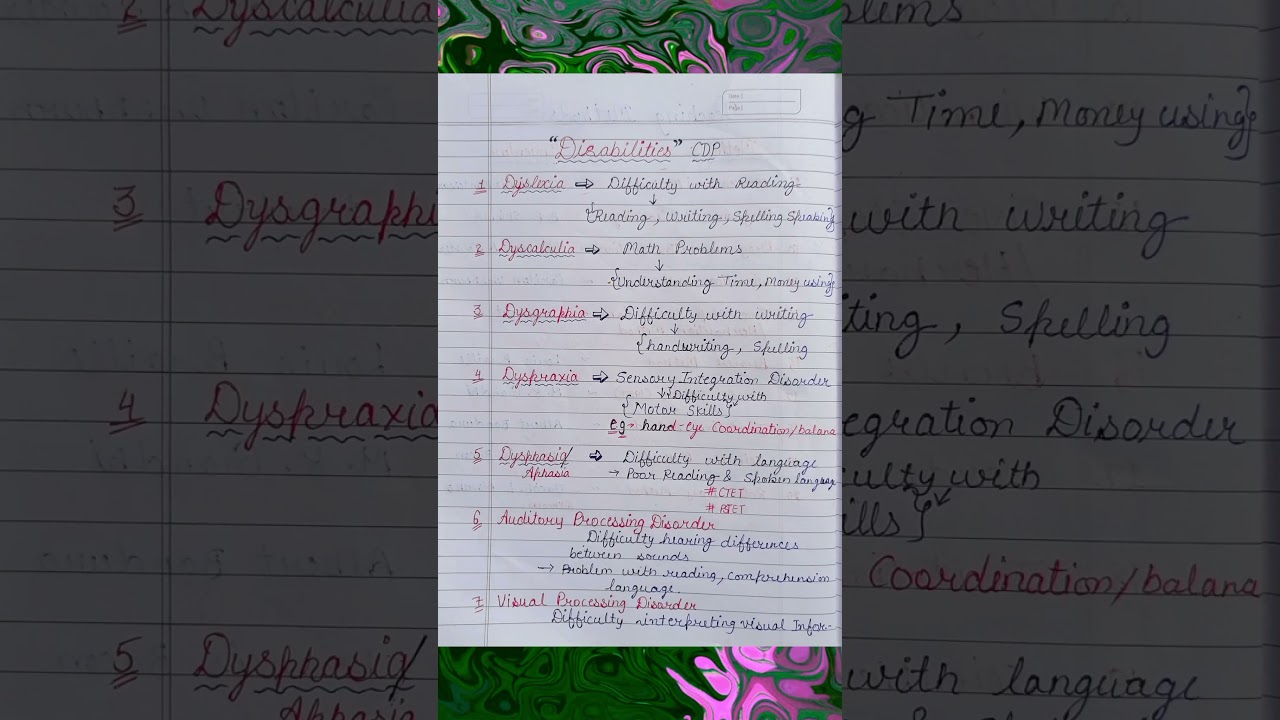 Date :
Page :
"Disabilities" CDP
1 Dyslexia ⇒ Difficulty with Reading
↓
{Reading, Writing, Spelling Speaking}
2 Dyscalculia ⇒ Math Problems
↓
{Understanding Time, Money using}
3 Dysgraphia ⇒ Difficulty with writing
↓
{handwriting, Spelling
4 Dyspraxia ⇒ Sensory Integration Disorder
↓ Difficulty with
{Motor Skills}
eg → hand-eye Coordination/balana
5 Dysphasia/ ⇒ Difficulty with language
Aphasia → Poor Reading & Spoken language
#CTET
# PSTET
6 Auditory Processing Disorder
Difficulty hearing differences
between sounds
→ Problem with reading, Comprehension
language.
7 Visual Processing Disorder
Difficulty interpreting visual Infor-
2 Dyscalculia
3 Dysgraphi
4 Dyspraxia
5 Dysphasia/
Aphasia
blems
g Time, Money using}
with writing
ting, Spelling
egration Disorder
culty with
ills}
Coordination/balana
with language